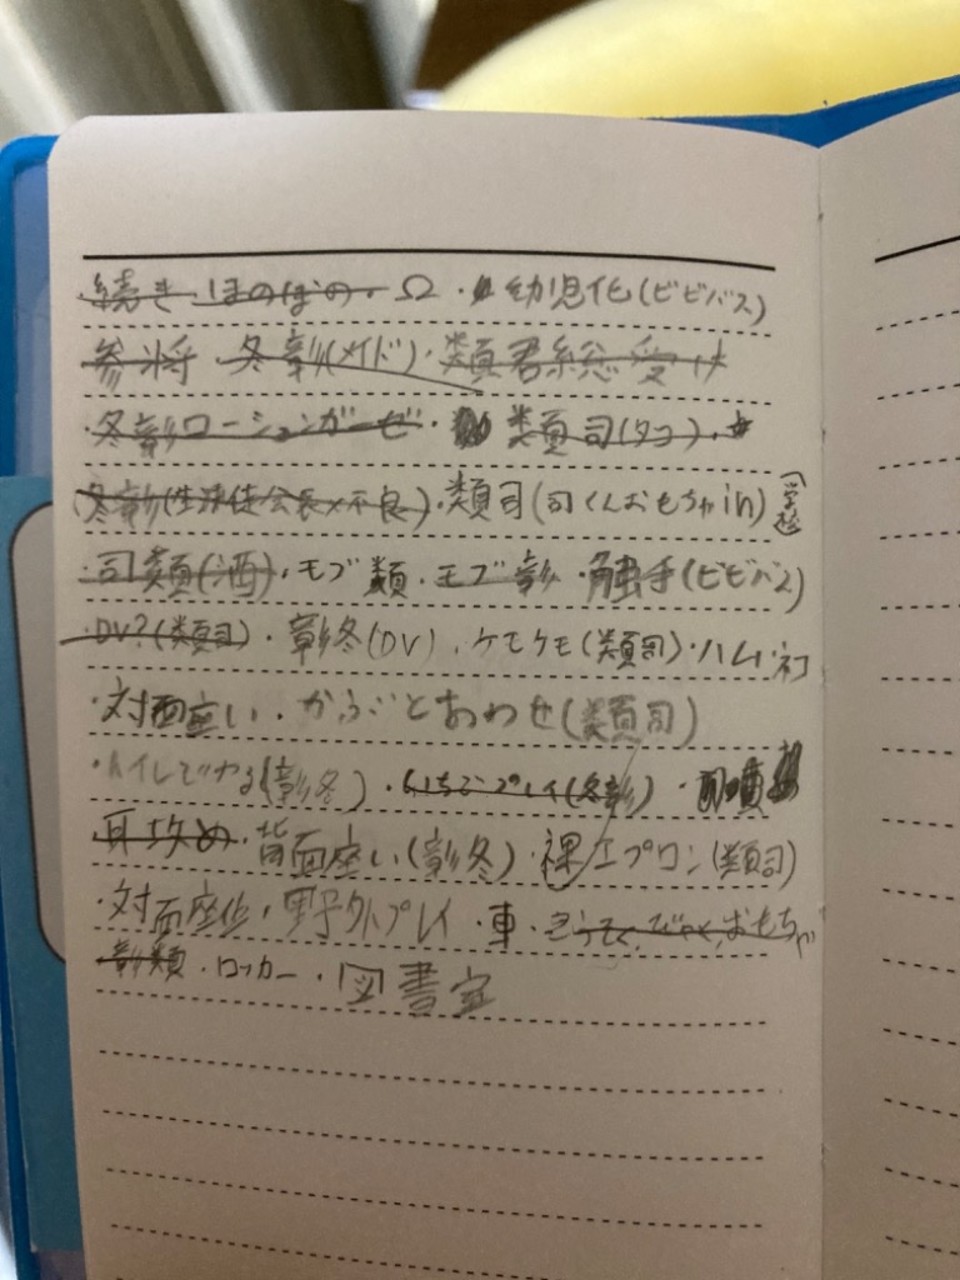 続き ほのぼの・Ω・幼児化(ビビバス)
参将・冬彰(メイド)・類君総受け
・冬彰ローションガーゼ・類司(タコ)・
冬彰(生徒会長×不良)・類司(司くんおもちゃin)(学校)
・司類(酒)・モブ類・モブ彰・触手(ビビバス)
・DV?(類司)・彰冬(DV)・ケモケモ(類司)・ハム・ネコ
・対面座い・かぶとあわせ(類司)
・トイレでやる(彰冬)・いちごプレイ(冬彰)・
耳攻め・背面座い(彰冬)・裸エプロン(類司)
・対面座位・野外プレイ・車・おもちゃ
彰類・ロッカー・図書室